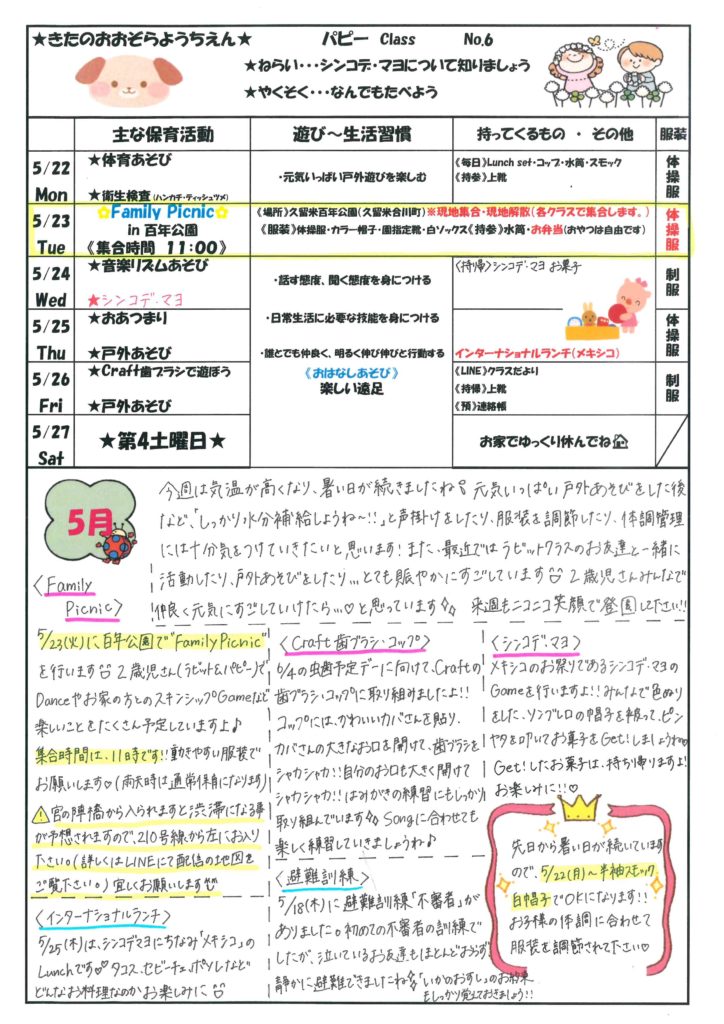 ★きたのおおぞらようちえん★　パピー Class　No.6
★ねらい・・・シンコデ・マヨについて知りましょう
★やくそく・・・なんでもたべよう
主な保育活動　遊び～生活習慣　持ってくるもの ・ その他　服装
5/22 Mon
★体育あそび
★衛生検査(ハンカチ・ティッシュツメ)
・元気いっぱい戸外遊びを楽しむ
《毎日》Lunch set・コップ・水筒・スモック
《持参》上靴
体操服
5/23 Tue
Family Picnic
in 百年公園
《集合時間 11:00》
《場所》久留米百年公園(久留米合川町)※現地集合・現地解散(各クラスで集合します。)
《服装》体操服・カラー帽子・園指定靴・白ソックス《持参》水筒・お弁当(おやつは自由です)
体操服
5/24 Wed
★音楽リズムあそび
★シンコデ・マヨ
・話す態度、聞く態度を身につける
〈持帰〉シンコデ・マヨ お菓子
制服
5/25 Thu
★おあつまり
★戸外あそび
・日常生活に必要な技能を身につける
・誰とでも仲良く、明るく伸び伸びと行動する
インターナショナルランチ(メキシコ)
体操服
5/26 Fri
★Craft歯ブラシで遊ぼう
★戸外あそび
《おはなしあそび》
楽しい遠足
《LINE》クラスだより
《持帰》上靴
《預》連絡帳
制服
5/27 Sat
★第4土曜日★
お家でゆっくり休んでね
5月
今週は気温が高くなり、暑い日が続きましたね 元気いっぱい戸外あそびをした後
など、「しっかり水分補給しようね～!!」と声掛けをしたり、服装を調節したり、体調管理
には十分気をつけていきたいと思います!また、最近ではラビットクラスのお友達と一緒に
活動したり、戸外あそびをしたり...とても賑やかにすごしています 2歳児さんみんなで
仲良く元気にすごしていけたら...♡と思っています 来週もニコニコ笑顔で登園して下さい!!
〈Family Picnic〉
5/23(火)に百年公園で"Family Picnic"
を行います 2歳児さん(ラビット&パピー)で
Danceやお家の方とのスキンシップGameなど
楽しいことをたくさん予定していますよ♪
集合時間は、11時です!!動きやすい服装で
お願いします♡(雨天時は通常保育になります)
⚠宮の陣橋から入られますと渋滞になる事
が予想されますので、210号線から左にお入り
下さい。(詳しくはLINEにて配信の地図を
ご覧下さい。)宜しくお願いします
〈インターナショナルランチ〉
5/25(木)は、シンコデマヨにちなみ「メキシコ」の
Lunchです♡♡タコス、セビーチェ、ポソレなど
どんなお料理なのかお楽しみに
〈Craft歯ブラシ・コップ〉
6/4の虫歯予定デーに向けて、Craftの
歯ブラシ・コップに取り組みましたよ!!
コップには、かわいいカバさんを貼り、
カバさんの大きなお口を開けて、歯ブラシを
シャカシャカ!!自分のお口も大きく開けて
シャカシャカ!!はみがきの練習にもしっかり
取り組んでいます Songに合わせても
楽しく練習していきましょうね♪
〈避難訓練〉
5/18(木)に避難訓練「不審者」が
ありました。初めての不審者の訓練で
したが、泣いているお友達もほとんどおらず
静かに避難できましたね 「いかのおすし」のお約束
もしっかり覚えておきましょう!!
〈シンコデ・マヨ〉
メキシコのお祭りであるシンコデ・マヨの
Gameを行いますよ!!みんなで色ぬり
をした、ソンブレロの帽子を被って、ピン
ヤタを叩いてお菓子をGet!しましょうね♡
Get!したお菓子は、持ち帰りますよ!
お楽しみに!!♡
先日から暑い日が続いています
ので、5/22(月)～半袖スモック
白帽子でOKになります!!
お子様の体調に合わせて
服装を調節されて下さい♡